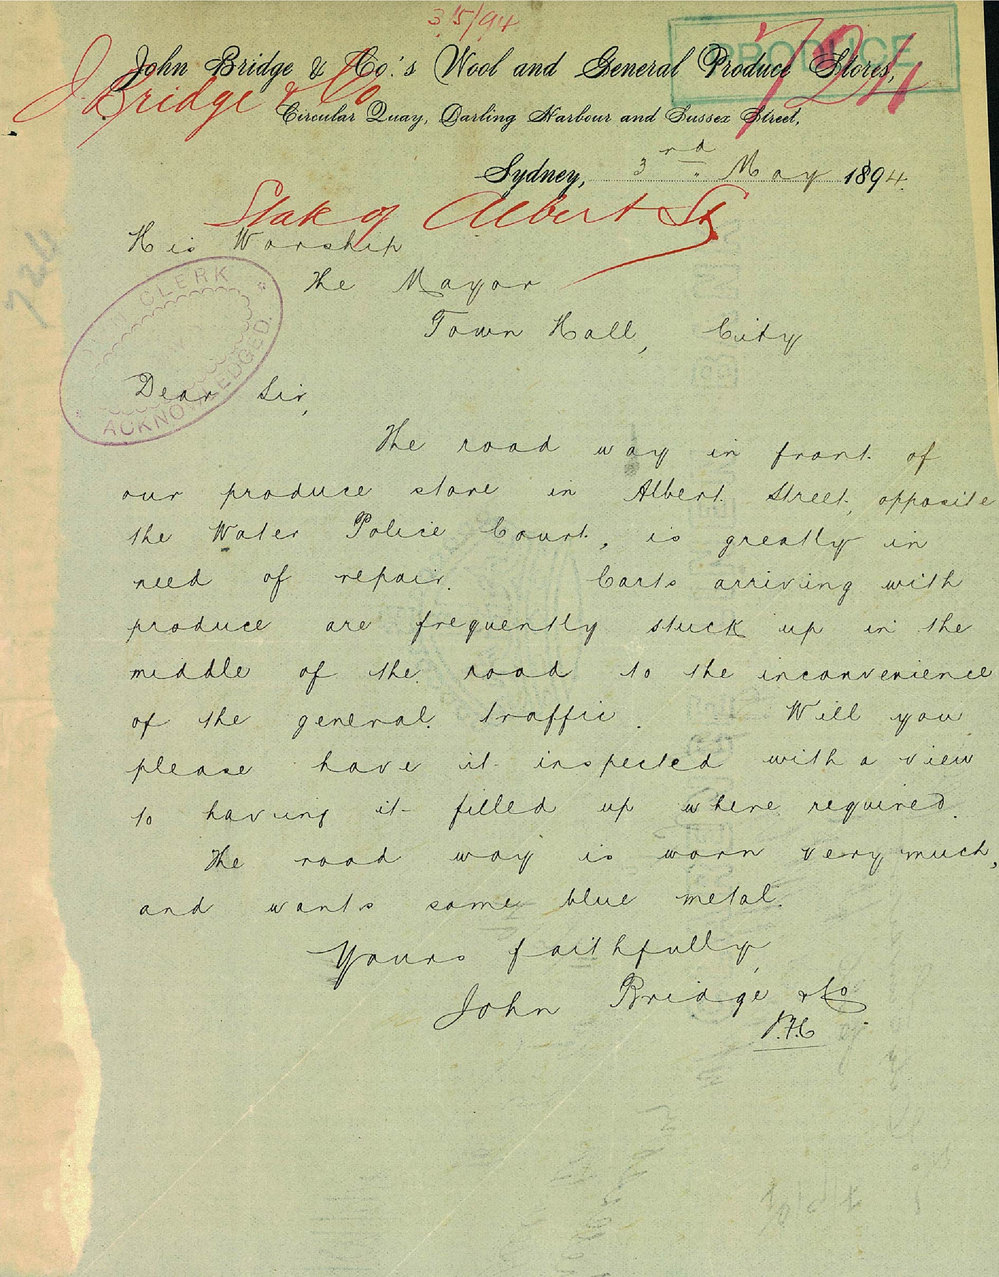 3/5/94
PRODUCE
724
John Bridge & Co.'s Wool and General Produce Stores,
J. Bridge & Co
Circular Quay, Darling Harbour and Sussex Street,
Sydney, 3rd May 1894.
State of Albert St
His Worship
The Mayor
Town Hall, City
724
TOWN CLERK
ACKNOWLEDGED.
Dear Sir,
The road way in front of
our produce store in Albert Street, opposite
the Water Police Court, is greatly in
need of repair. Carts arriving with
produce are frequently stuck up in the
middle of the road to the inconvenience
of the general traffic. Will you
please have it inspected with a view
to having it filled up where required.
The road way is worn very much,
and wants some blue metal.
Yours faithfully,
John Bridge & Co